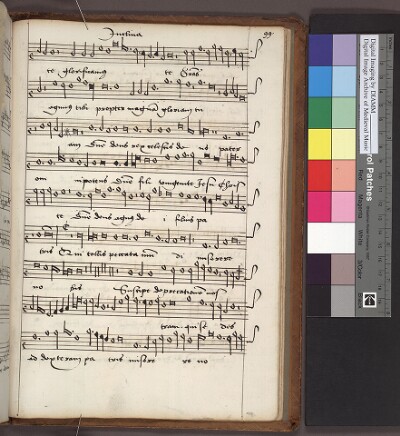 99
te glorificamus te Gras
agimus tibi propter magnam gloriam tu
am Dne deus rex celestis de us pater
om nipotens Dne fili unigenite Jesu Christ
te Dne deus agnus de i filius pa
tris Qui tollis peccata mu di miserere
no bis Suscipe deprecationem nos
tram qui se des
ad dexteram pa tris misere re no
Digital Imaging by DIAMM
Digital Image Archive of Medieval Music
rol Patches
Red
Magenta
White
3/Color
Black
Kodak